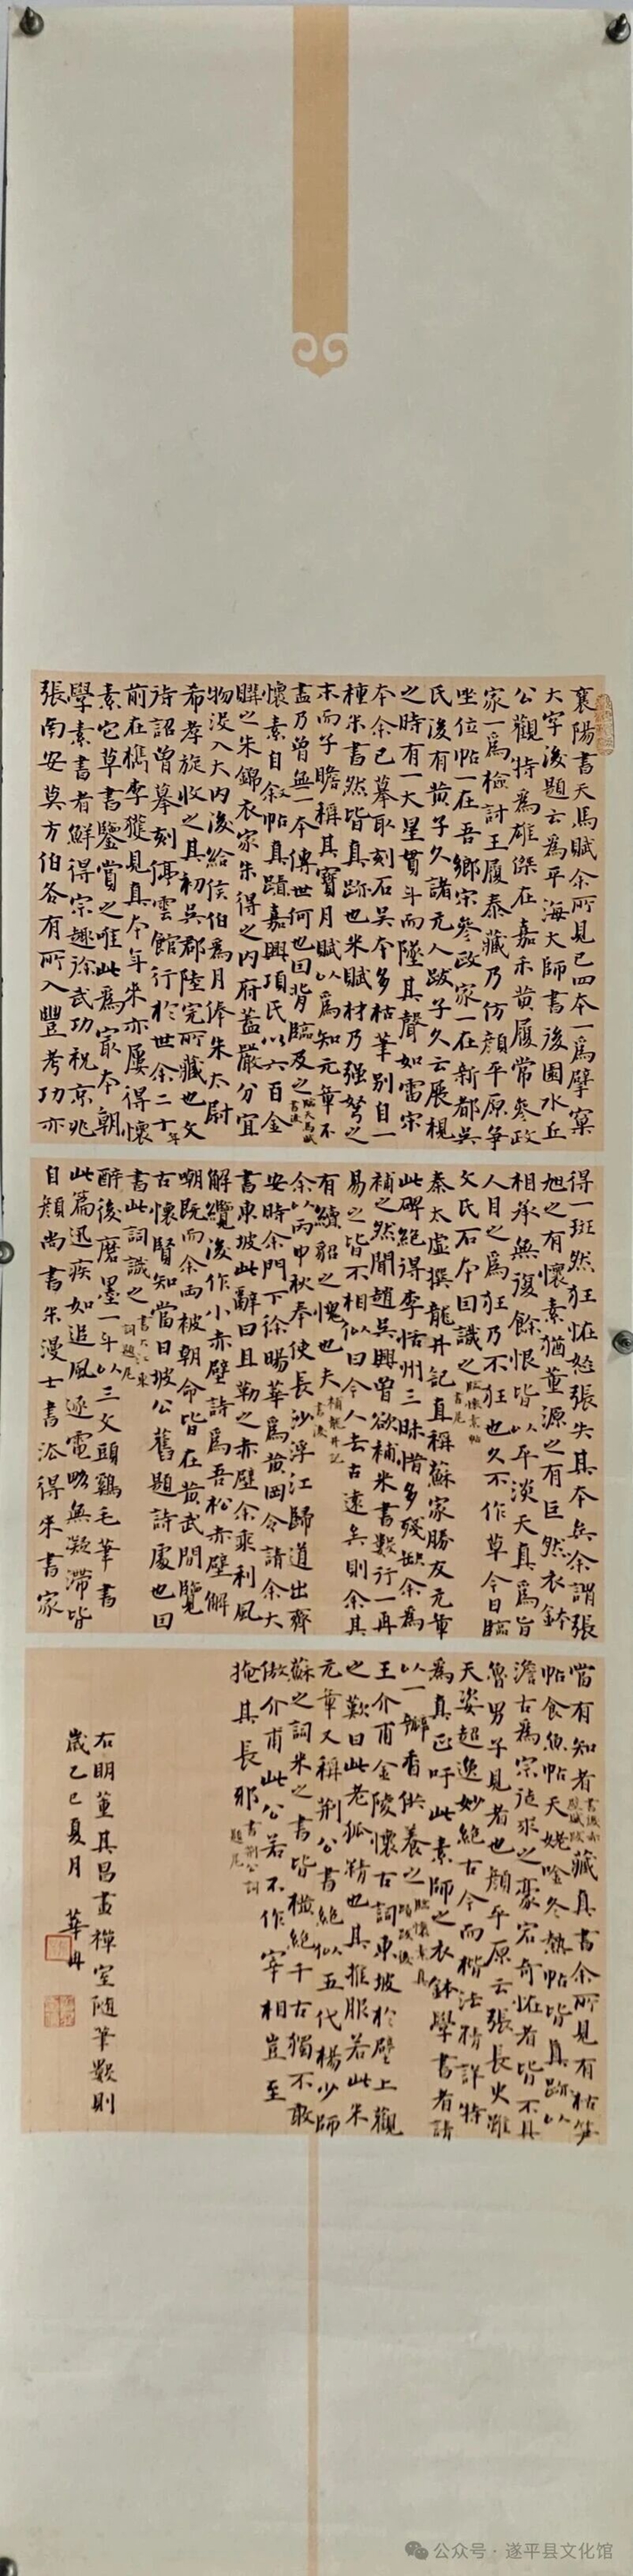 襄陽書天馬賦余所見已四本一爲擘窠
大字後題云爲平海大師書後園水丘
公觀特爲雄傑在嘉禾黃履常參政
家一爲檢討王履泰藏乃仿顏平原爭
坐位帖一在吾鄉宗參政家一在新都吳
氏後有黃子久諸元人跋子久云展視
之時有一大星貫斗而墜其聲如雷宗
本余已摹取刻石吳本多枯筆別自一
種米書然皆真跡也米賦材乃强弩之
末而子瞻稱其寶月賦以爲知元章不
盡乃曾無一本傳世何也因背臨及之臨天馬賦書後
懷素自敘帖真蹟嘉興項氏以六百金
購之朱錦衣家朱得之内府蓋嚴分宜
物没入大内後給侯伯爲月俸朱太尉
希孝旋收之其初吳郡陸完所藏也文
待詔曾摹刻停雲館行於世余二十年
前在檇李獲見真本年來亦屢得懷
素它草書鑒賞之唯此爲最本朝
學素書者鮮得宗趣徐武功祝京兆
張南安莫方伯各有所入豐考功亦
得一斑然狂怪怒張失其本矣余謂張
旭之有懷素猶董源之有巨然衣鉢
相承無復餘恨皆以平淡天真爲旨
人目之爲狂乃不狂也久不作草今日臨
文氏石本因識之臨懷素帖書尾
秦太虛撰龍井記直稱蘇家勝友元章
此碑絕得李括州三昧惜多殘缺余爲
補之然聞趙吳興曾欲補米書數行一再
易之皆不相似曰今人去古遠矣則余其
有續貂之愧也夫補龍井記書後
余以丙申秋奉使長沙浮江歸道出齊
安時余門下徐暘華爲黃岡令請余大
書東坡此辭曰且勒之赤壁余乘利風
解纜後作小赤壁詩爲吾松赤壁解
嘲既而余兩被朝命皆在黃武間覽
古懷賢知當日坡公舊題詩處也因
書此詞識之書大江東詞題尾
醉後磨墨一斗以三文頭雞毛筆書
此篇迅疾如追風逐電略無凝滯皆
自顏尚書米漫士書派得米書家
當有知者書後赤壁賦跋藏真書余所見有枯筍
帖食魚帖天姥吟冬熱帖皆真跡以
澹古爲宗徒求之豪宕奇怪者皆不具
魯男子見者也顏平原云張長史雖
天姿超逸妙絕古今而楷法精詳特
爲真正吁此素師之衣鉢學書者請
以一瓣香供養之臨懷素真跡跋後
王介甫金陵懷古詞東坡於壁上觀
之歎曰此老狐精也其推服若此米
元章又稱荆公書絕似五代楊少師
蘇之詞米之書皆橫絕千古獨不敢
傲介甫此公若不作宰相豈至
掩其長耶書荆公詞題尾
右明董其昌畫禪室隨筆數則
歲乙巳夏月
公众号·遂平县文化馆